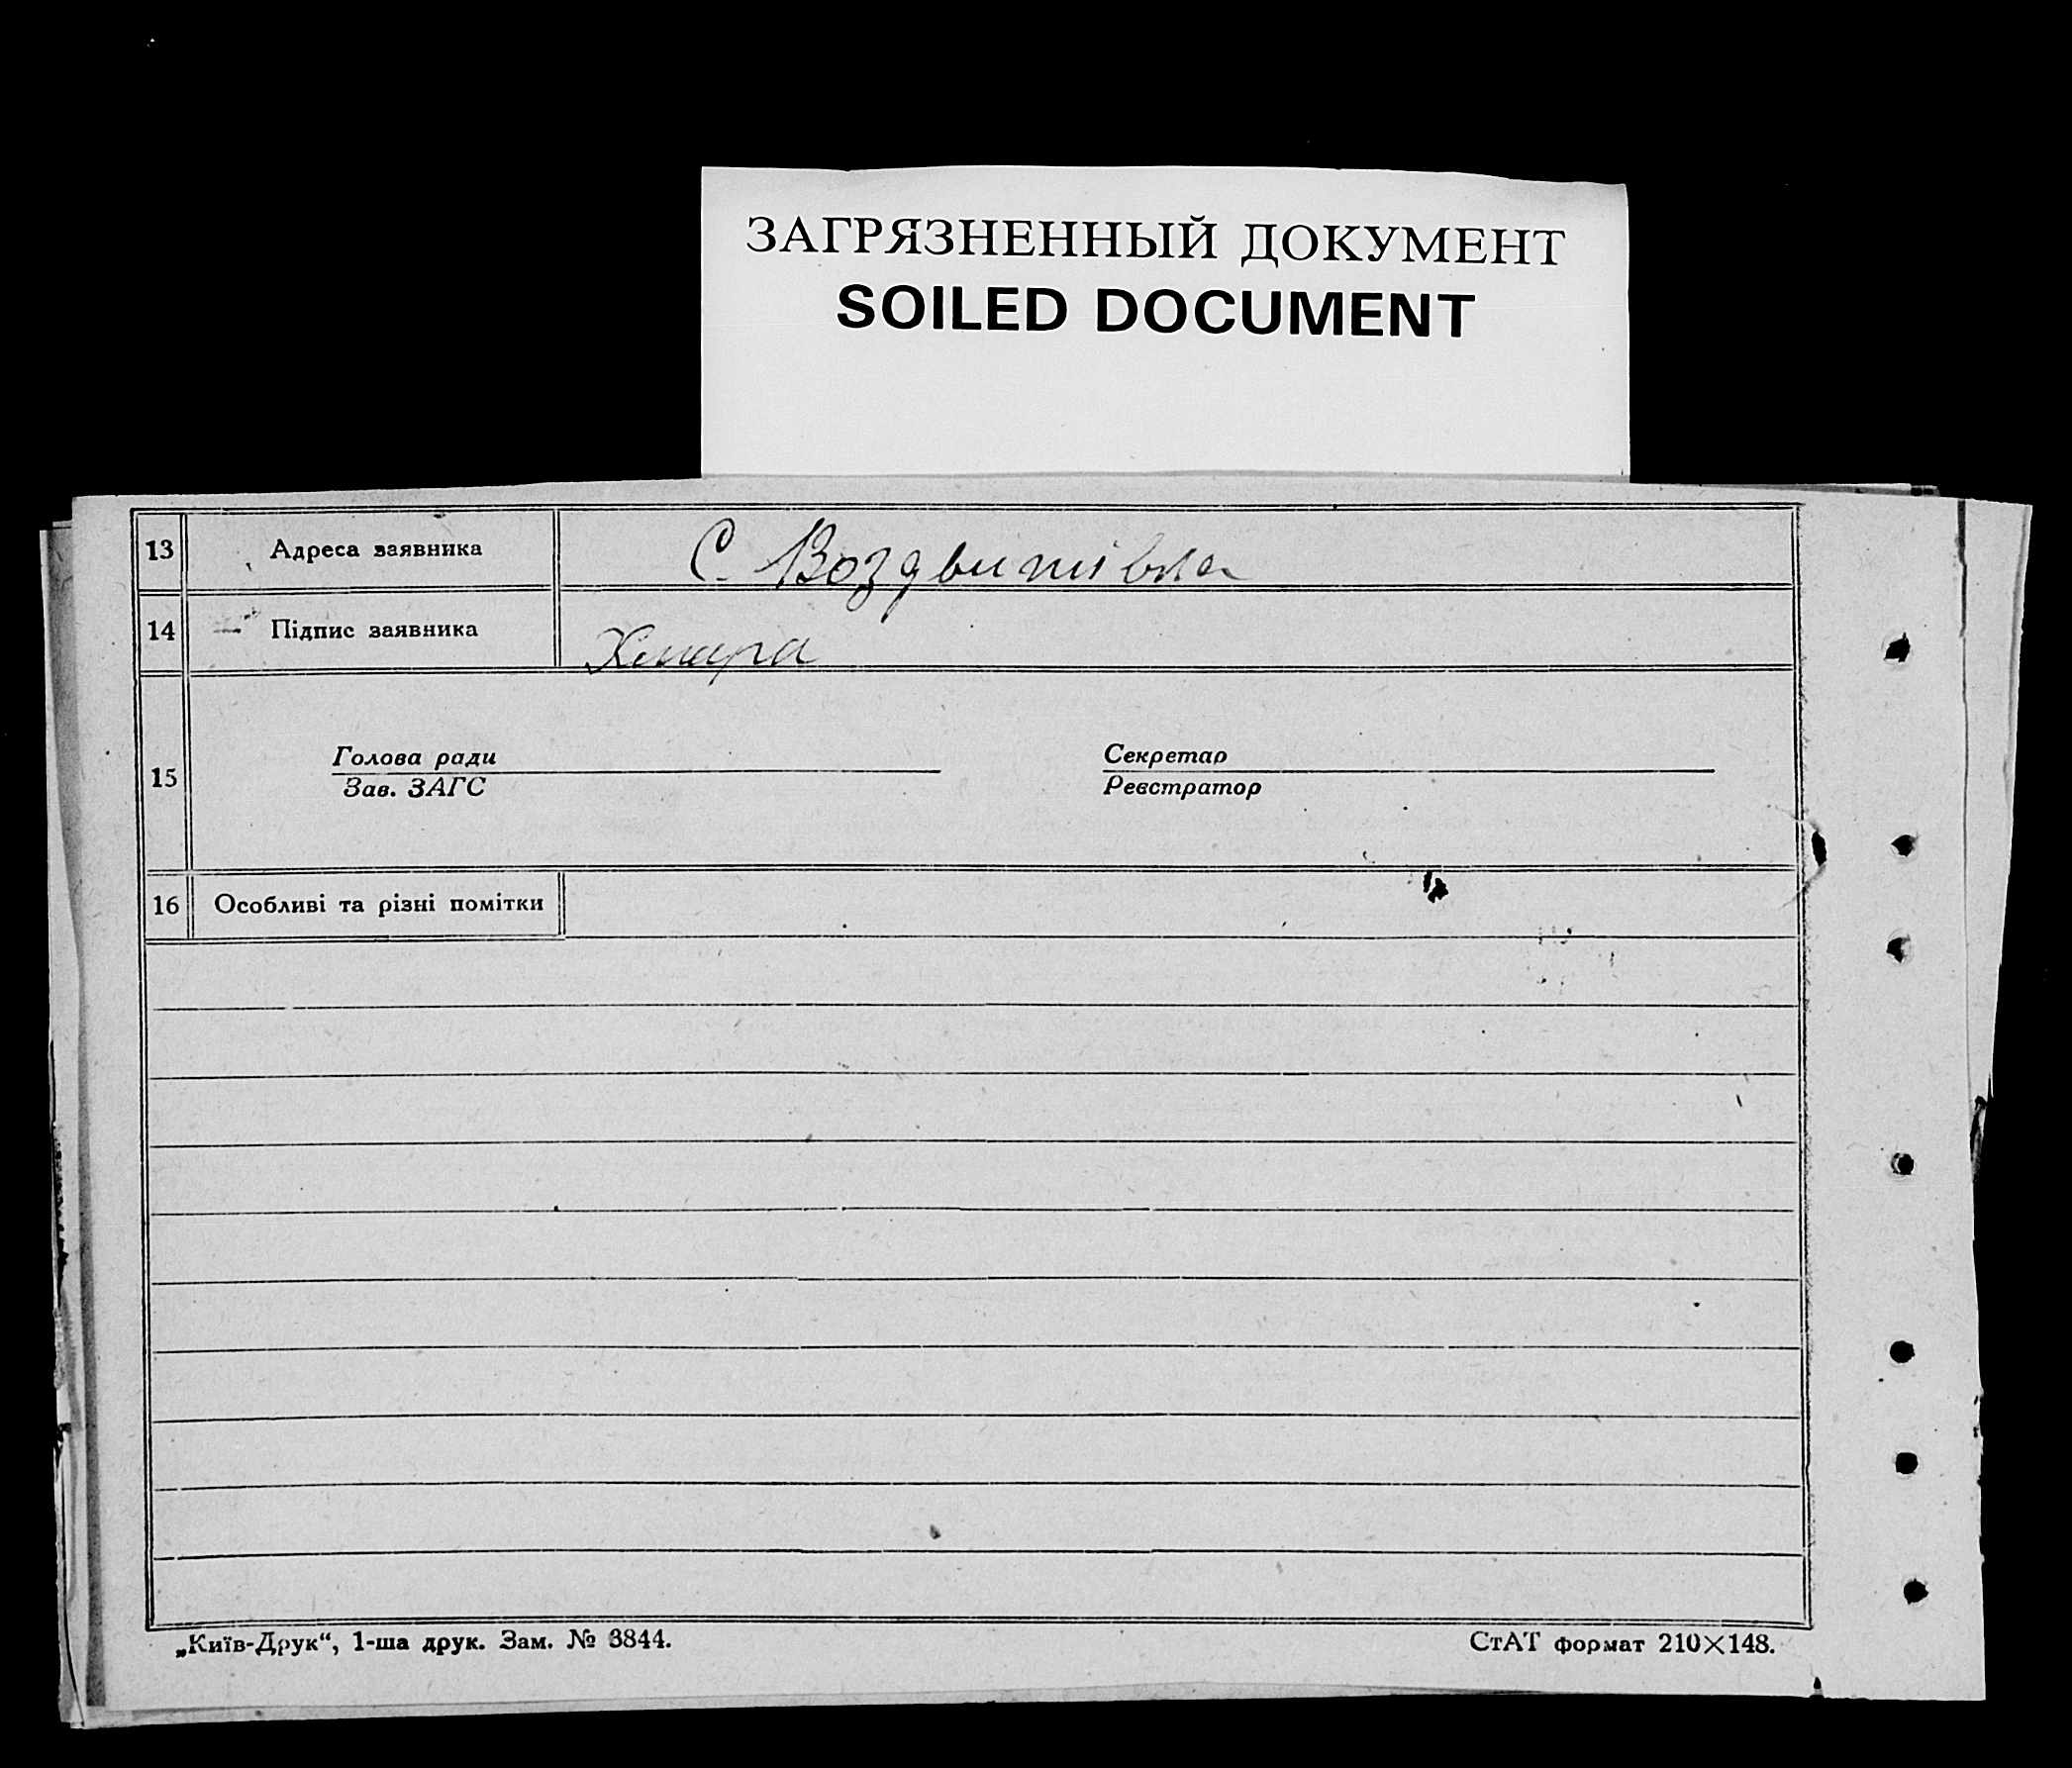 ЗАГРЯЗНЕННЫЙ ДОКУМЕНТ
SOILED DOCUMENT
13 Адреса заявника С. Воздвижівка
14 Підпис заявника Хмара
15 Голова ради Секретар
Зав. ЗАГС Реєстратор
16 Особливі та різні помітки
„Київ-Друк“, 1-ша друк. Зам. № 3844.
СтАТ формат 210×148.